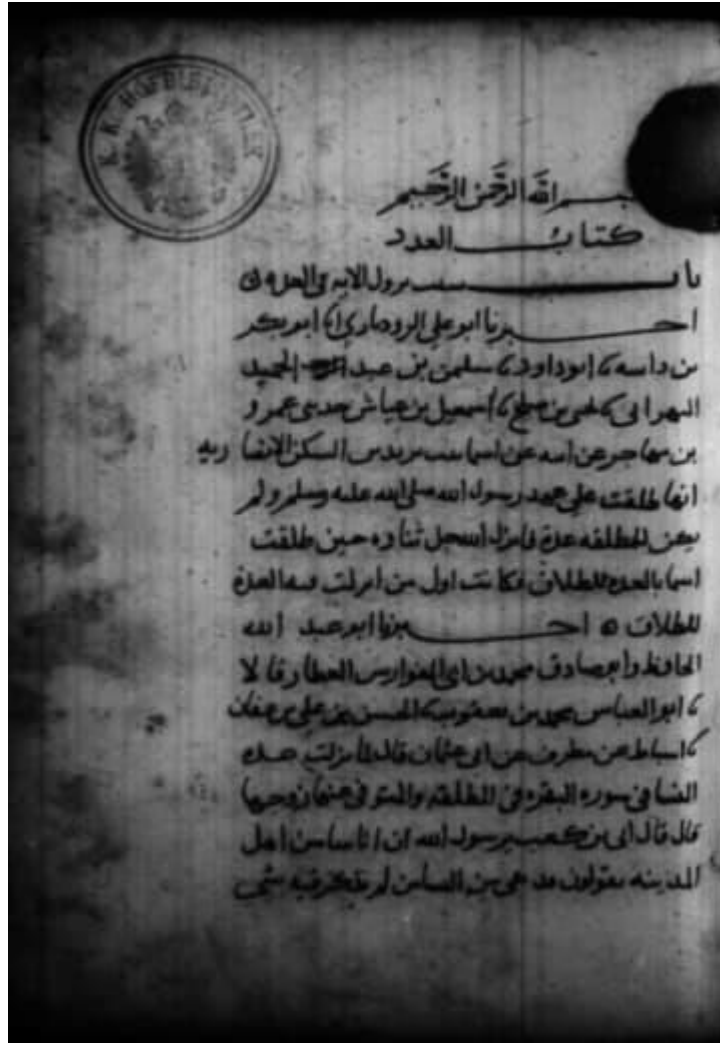 K. K. HOFBIBLIOTHEK
بسم الله الرحمن الرحيم
كتاب العدد
باب سبب نزول الآية في العدة
اخبرنا ابو علي الروذباري انا ابو بكر
بن داسه نا ابو داود نا سليمن بن عبد الحميد
البهراني نا يحيى بن صلح نا اسمعيل بن عياش حدثني عمرو
بن مهاجر عن ابيه عن اسما بنت يزيد بن السكن الانصاريه
انها طلقت على عهد رسول الله صلى الله عليه وسلم ولم
يكن للمطلقه عدة فانزل الله جل ثناوه حين طلقت
اسما بالعده للطلاق فكانت اول من انزلت فيه العدة
للطلاق اخبرنا ابو عبد الله
الحافظ وابو صادق محمد بن ابي الفوارس العطار قالا
نا ابو العباس محمد بن يعقوب نا الحسن بن علي بن عفان
نا اسباط عن مطرف عن ابي عثمان قال لما نزلت هذه
النسا في سوره البقره في المطلقه والمتوفى عنها زوجها
قال قال ابي بن كعب يرسول الله ان اناسا من اهل
المدينه يقولون قد بقي من النسا من لم يذكر فيه شي